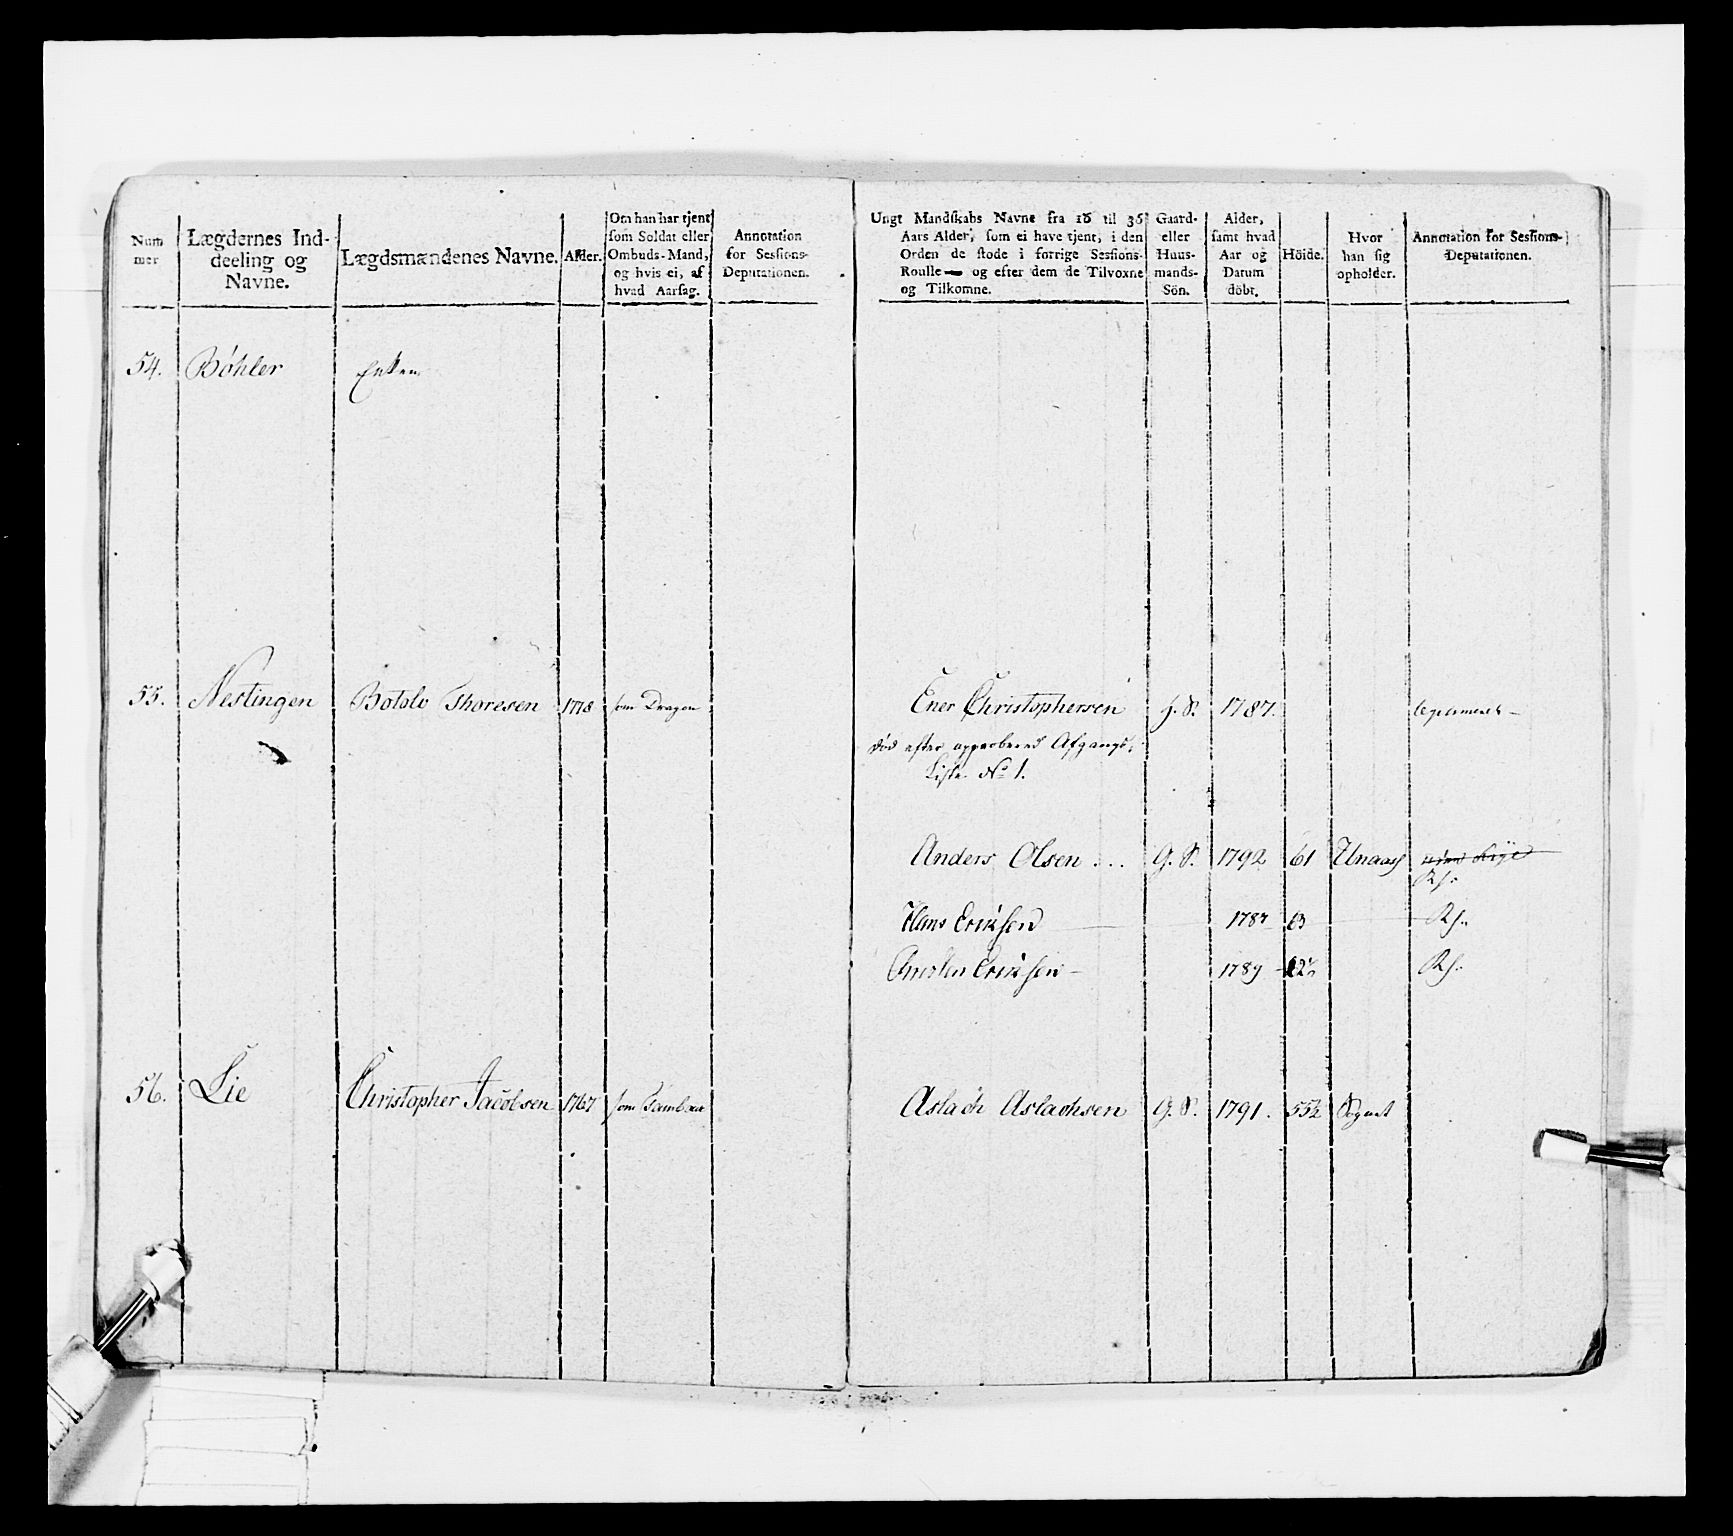 Num
mer
Lægdernes Ind-
deeling og
Navne.
Lægdsmændenes Navne.
Alder.
Om han har tjent
som Soldat eller
Ombuds-Mand,
og hvis ei, af
hvad Aarsag.
Annotation
for Sessions-
Deputationen.
Ungt Mandskabs Navne fra 16 til 36
Aars Alder, som ei have tjent, i den
Orden de stode i forrige Sessions-
Roulle — og efter dem de Tilvoxne
og Tilkomne.
Gaard-
eller
Huus-
mands-
Sön.
Alder,
samt hvad
Aar og
Datum
döbt.
Höide.
Hvor
han sig
opholder.
Annotation for Sessions-
Deputationen.
54. Bøhler Enken
55. Nestingen Botolv Thoresen 1778 som Dragon Ener Christophersen H. S. 1787.
død efter approberet Afgangs-
Liste No 1.
Anders Olsen ... G. S. 1792 61
Rs.
Hans Eriksen 1787 63 Rs.
Eriksen 1789 Rs.
56. Lie Christopher Jacobsen 1767 som Tambur Aslach Aslachsen G. S. 1791. 55½ Sognet